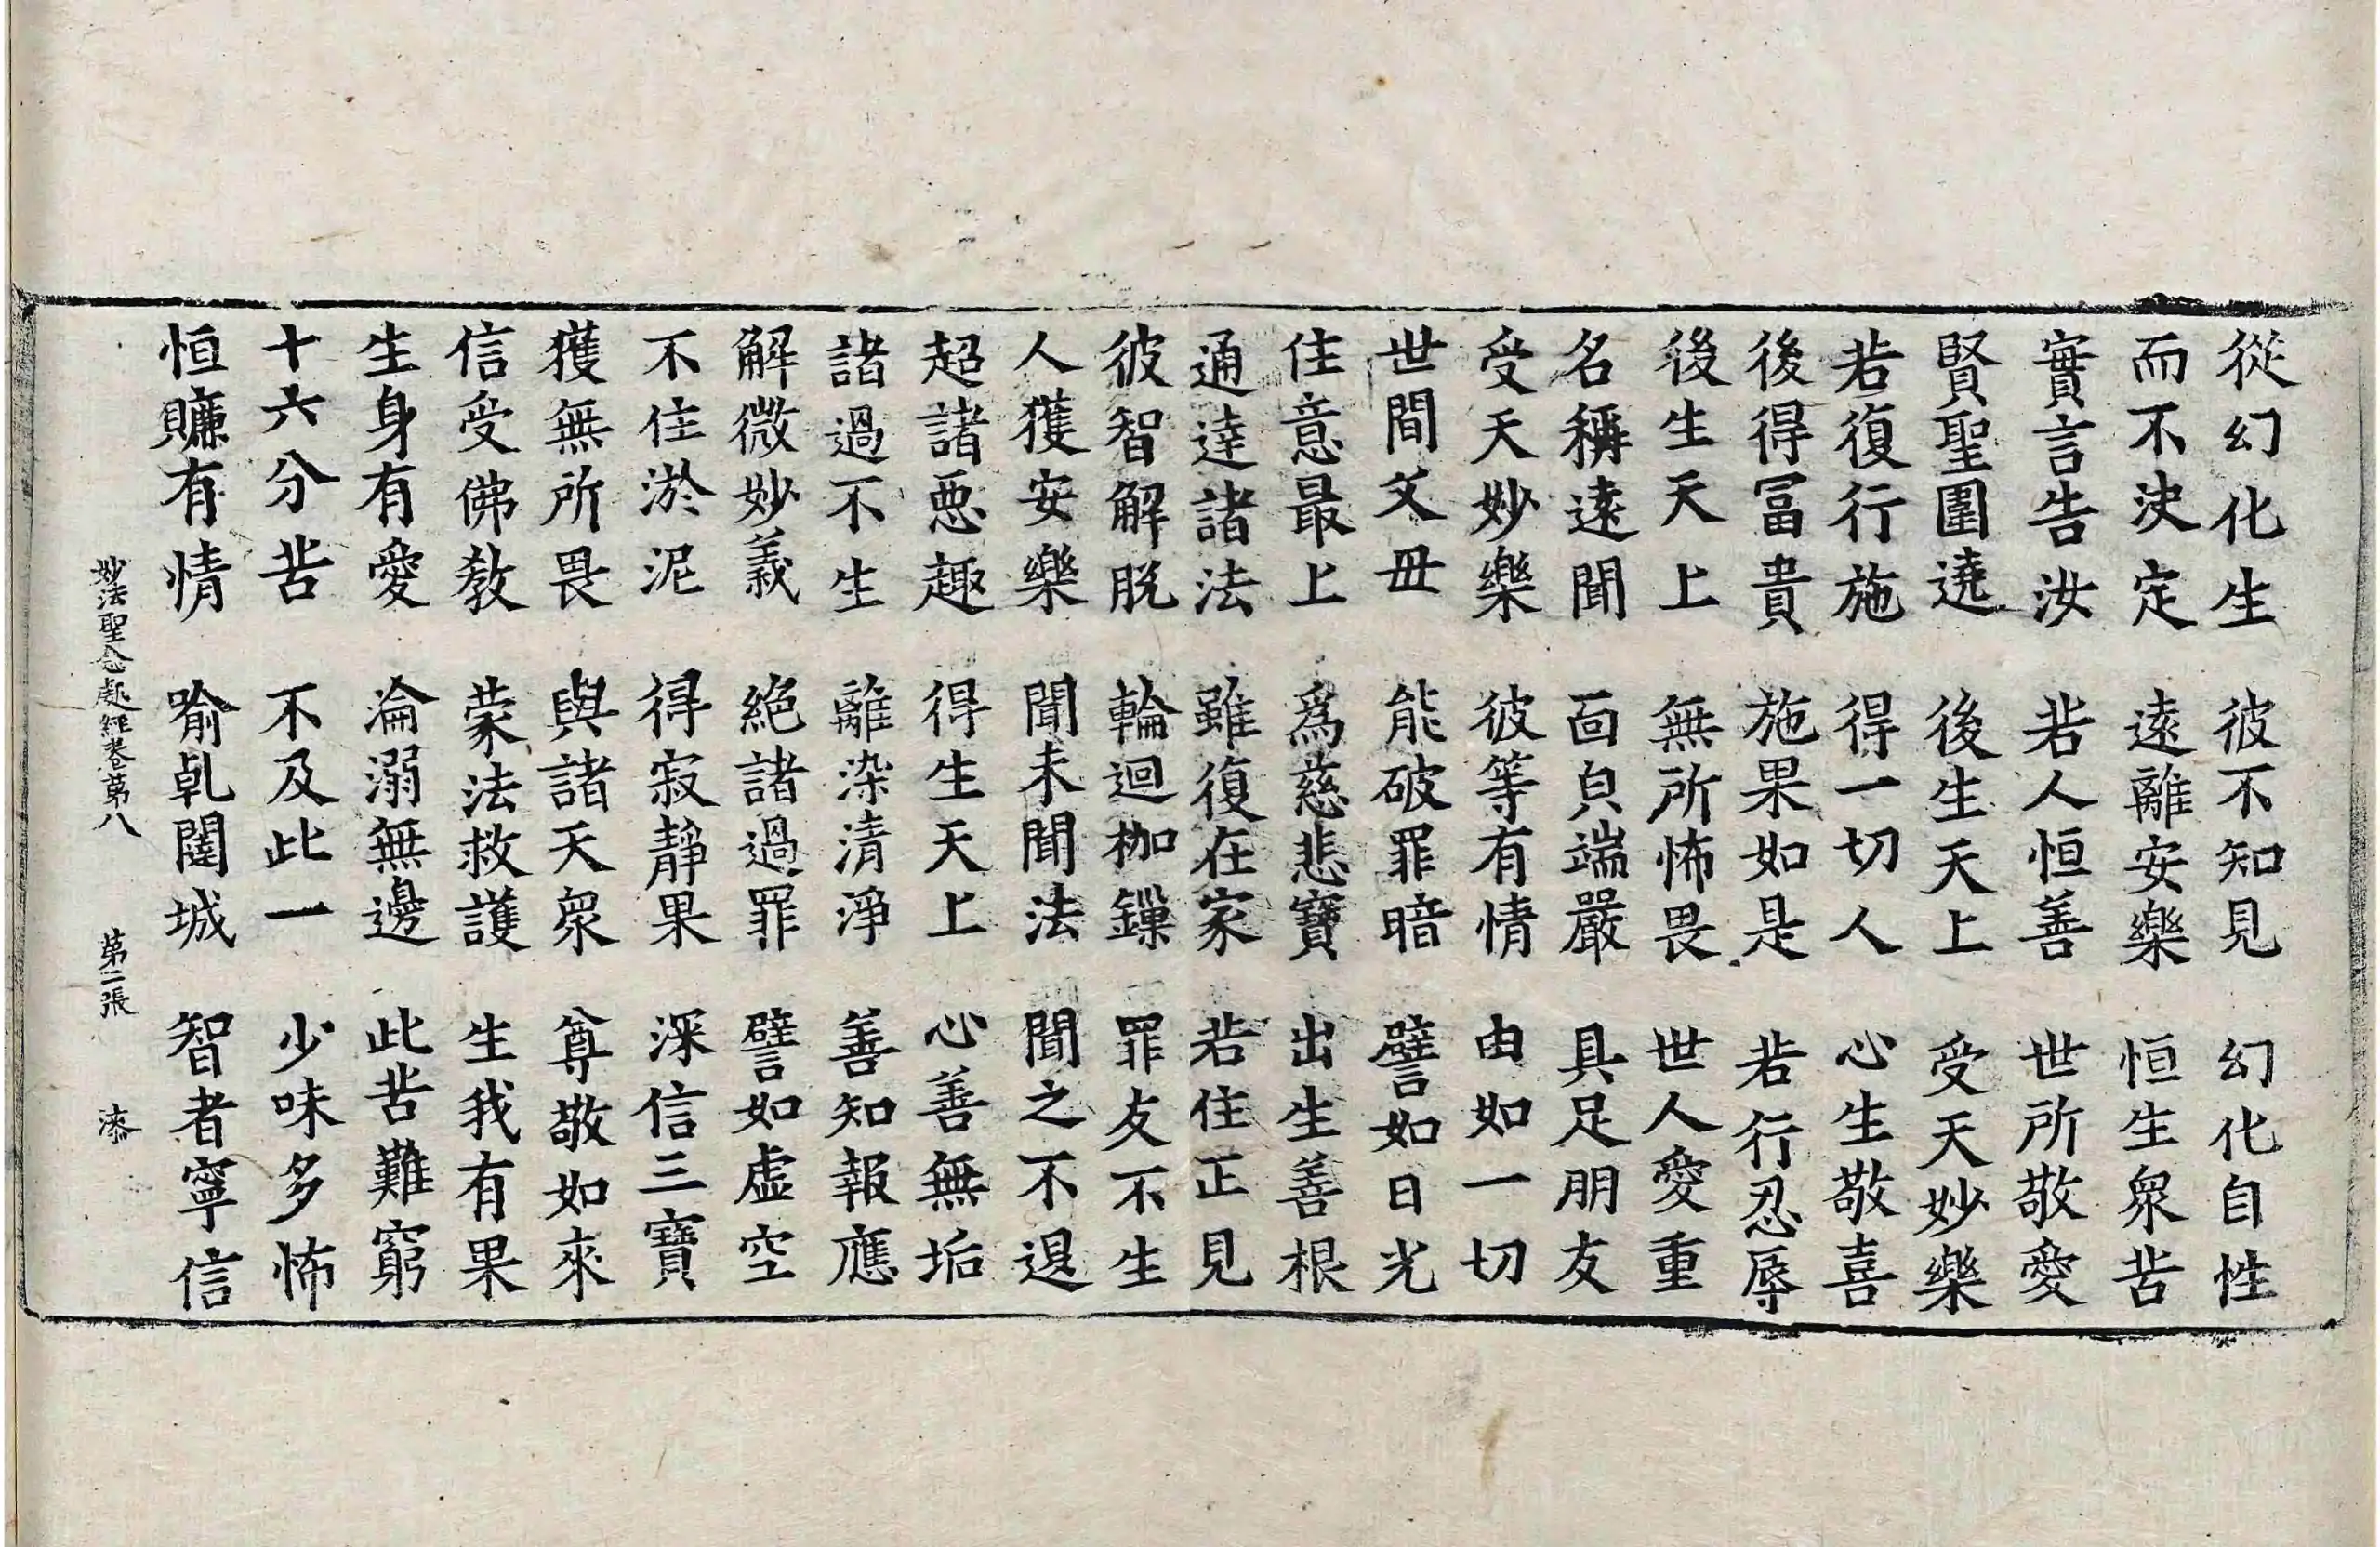 從幻化生　彼不知見　幻化自性
而不決定　遠離安樂　恒生衆苦
實言告汝　若人恒善　世所敬愛
賢聖圍遶　後生天上　受天妙樂
若復行施　得一切人　心生敬喜
後得冨貴　施果如是　若行忍辱
後生天上　無所怖畏　世人愛重
名稱遠聞　面皃端嚴　具足朋友
受天妙樂　彼等有情　由如一切
世間父母　能破罪暗　譬如日光
住意最上　爲慈悲寶　出生善根
通達諸法　雖復在家　若住正見
彼智解脫　輪迴枷鏁　罪友不生
人獲安樂　聞未聞法　聞之不退
超諸惡趣　得生天上　心善無垢
諸過不生　離染清淨　善知報應
解微妙義　絕諸過罪　譬如虛空
不住淤泥　得寂靜果　深信三寶
獲無所畏　與諸天衆　尊敬如來
信受佛教　蒙法救護　生我有果
生身有愛　淪溺無邊　此苦難窮
十六分苦　不及此一　少味多怖
恒賺有情　喻乹闥城　智者寧信
妙法聖念處經卷第八　第二張　漆